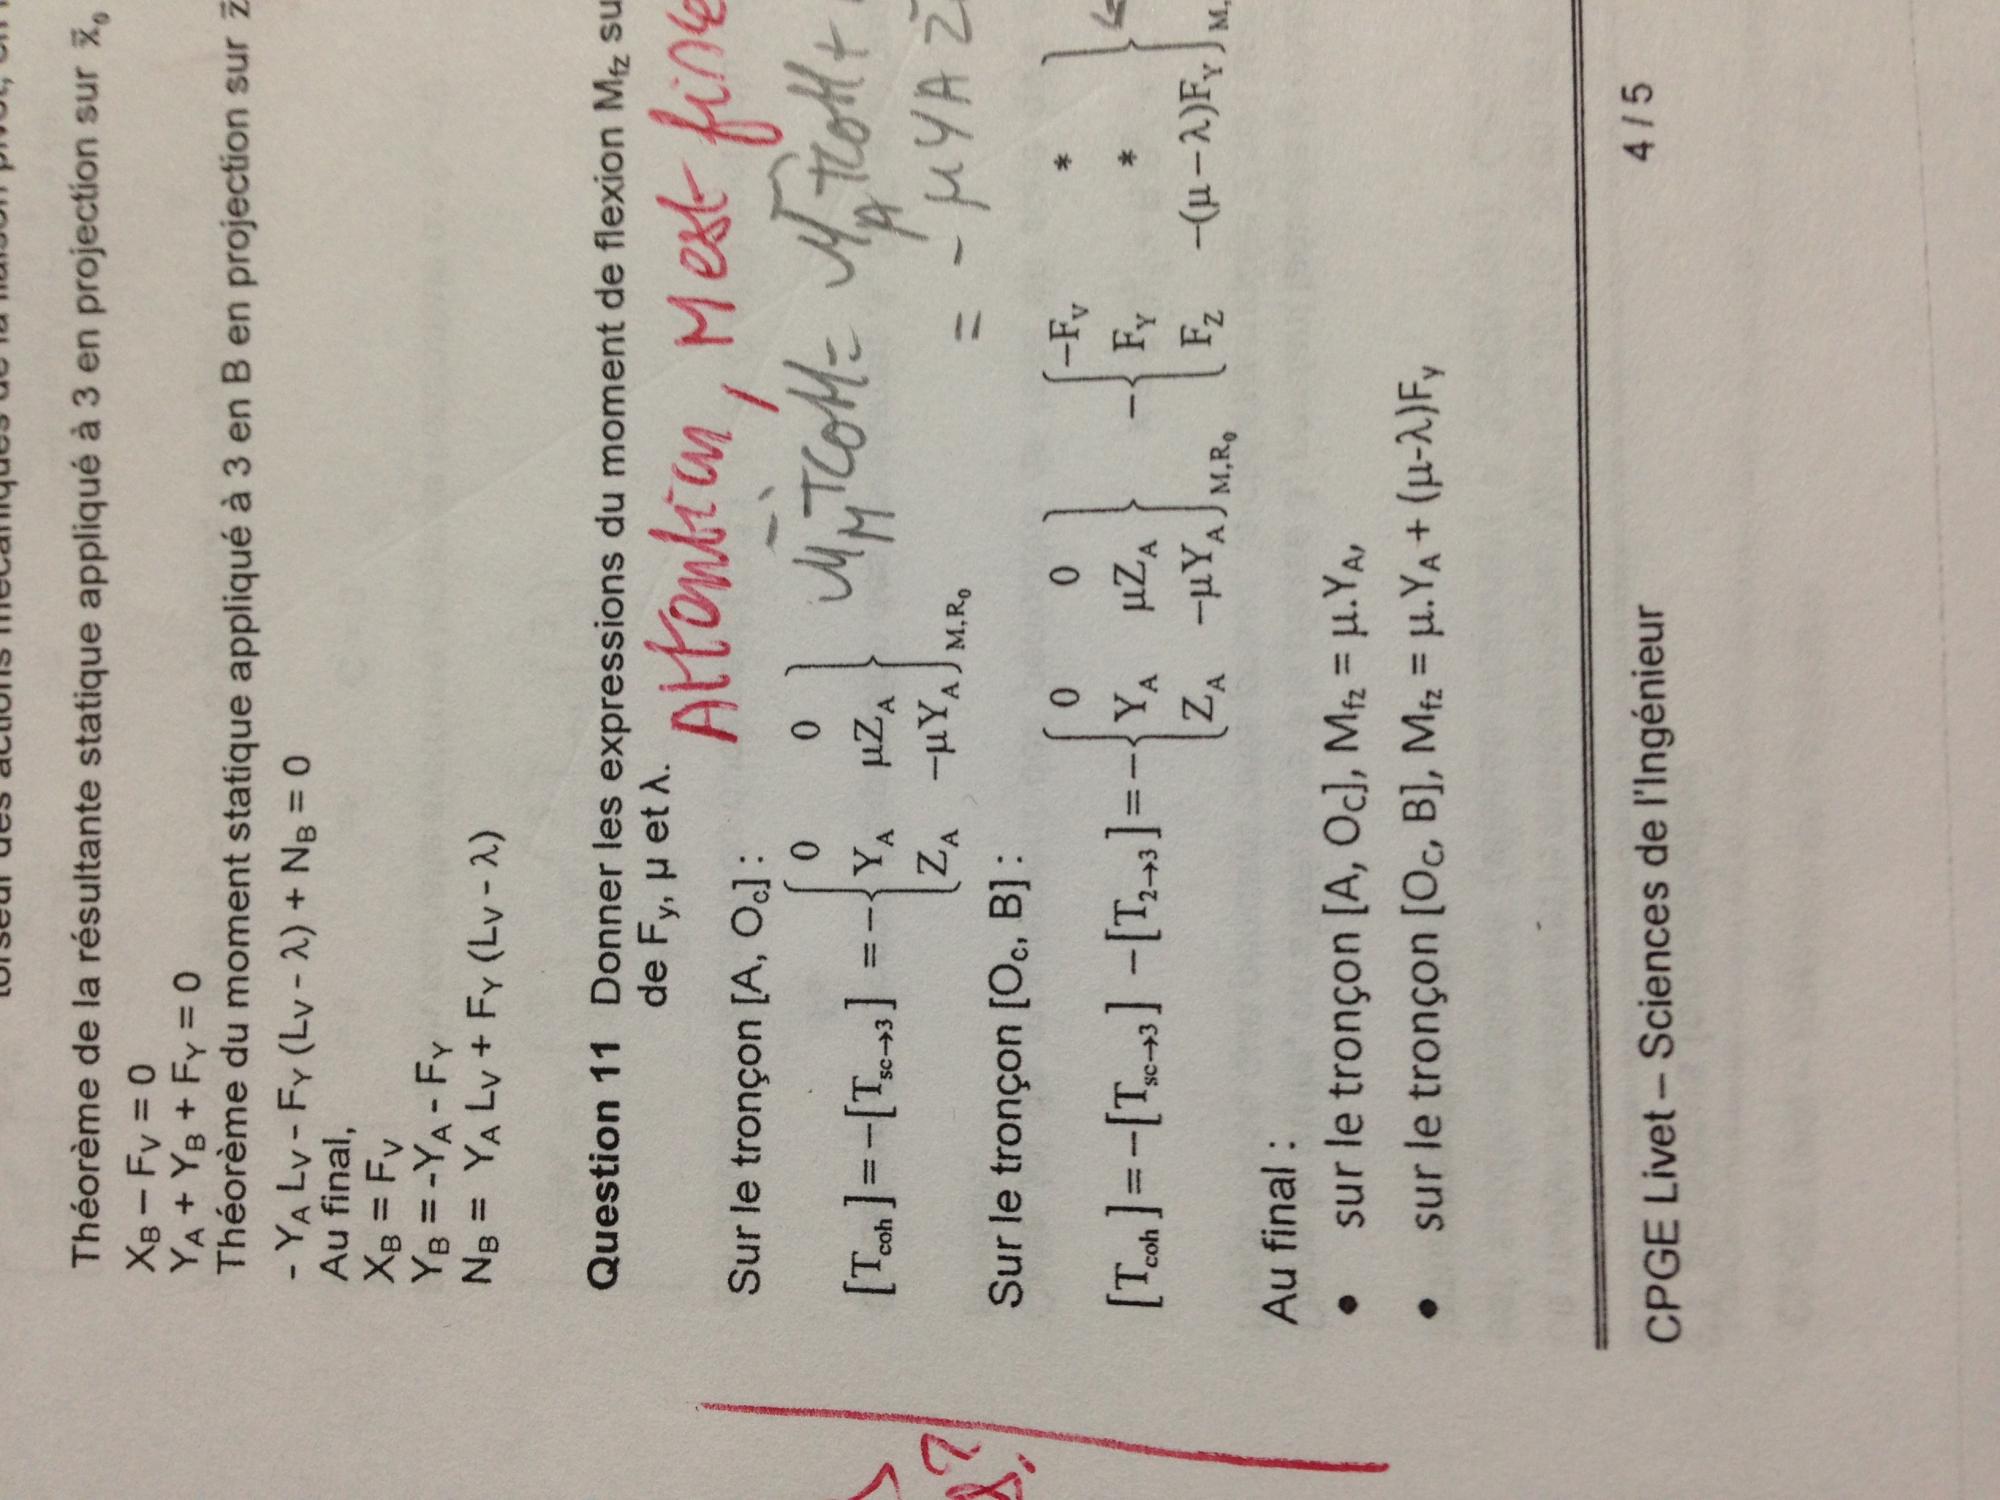 torseur des actions mécaniques de la liaison pivot, en
Théorème de la résultante statique appliqué à 3 en projection sur x̄₀
X_B – F_V = 0
Y_A + Y_B + F_Y = 0
Théorème du moment statique appliqué à 3 en B en projection sur z̄
- Y_A L_V - F_Y (L_V - λ) + N_B = 0
Au final,
X_B = F_V
Y_B = -Y_A - F_Y
N_B = Y_A L_V + F_Y (L_V - λ)
Question 11 Donner les expressions du moment de flexion M_fz su
de F_y, μ et λ.
Attention, M est fixe
Sur le tronçon [A, O_c] :
M_M TCOH = M_A TCOH +
[T_coh] = -[T_sc→3] = -{ 0 0 / Y_A μZ_A / Z_A -μY_A }_M,R₀
= - μ Y A Z
Sur le tronçon [O_c, B] :
[T_coh] = -[T_sc→3] - [T_2→3] = -{ 0 0 / Y_A μZ_A / Z_A -μY_A }_M,R₀ - { -F_V * / F_Y * / F_Z -(μ-λ)F_Y }_M,
Au final :
• sur le tronçon [A, O_C], M_fz = μ.Y_A,
• sur le tronçon [O_C, B], M_fz = μ.Y_A + (μ-λ)F_y
CPGE Livet – Sciences de l'Ingénieur 4 / 5